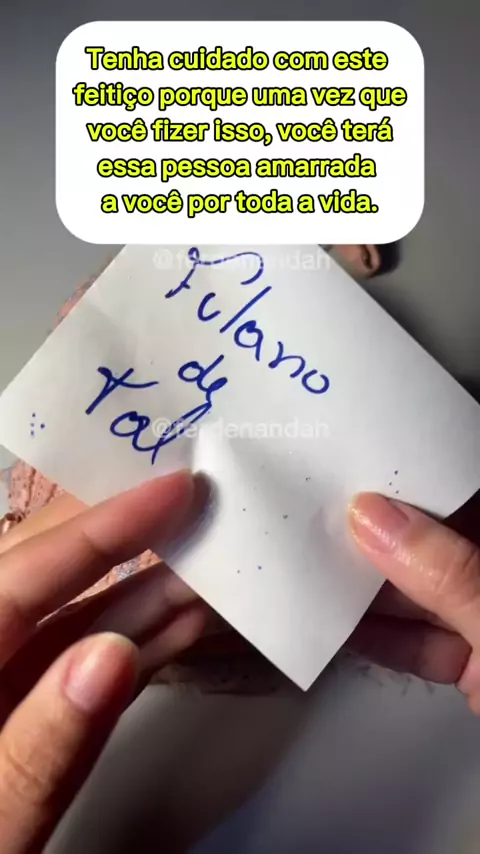 Tenha cuidado com este
feitiço porque uma vez que
você fizer isso, você terá
essa pessoa amarrada
a você por toda a vida.
@ferdenandah
Fulano
de
tal
@ferdenandah